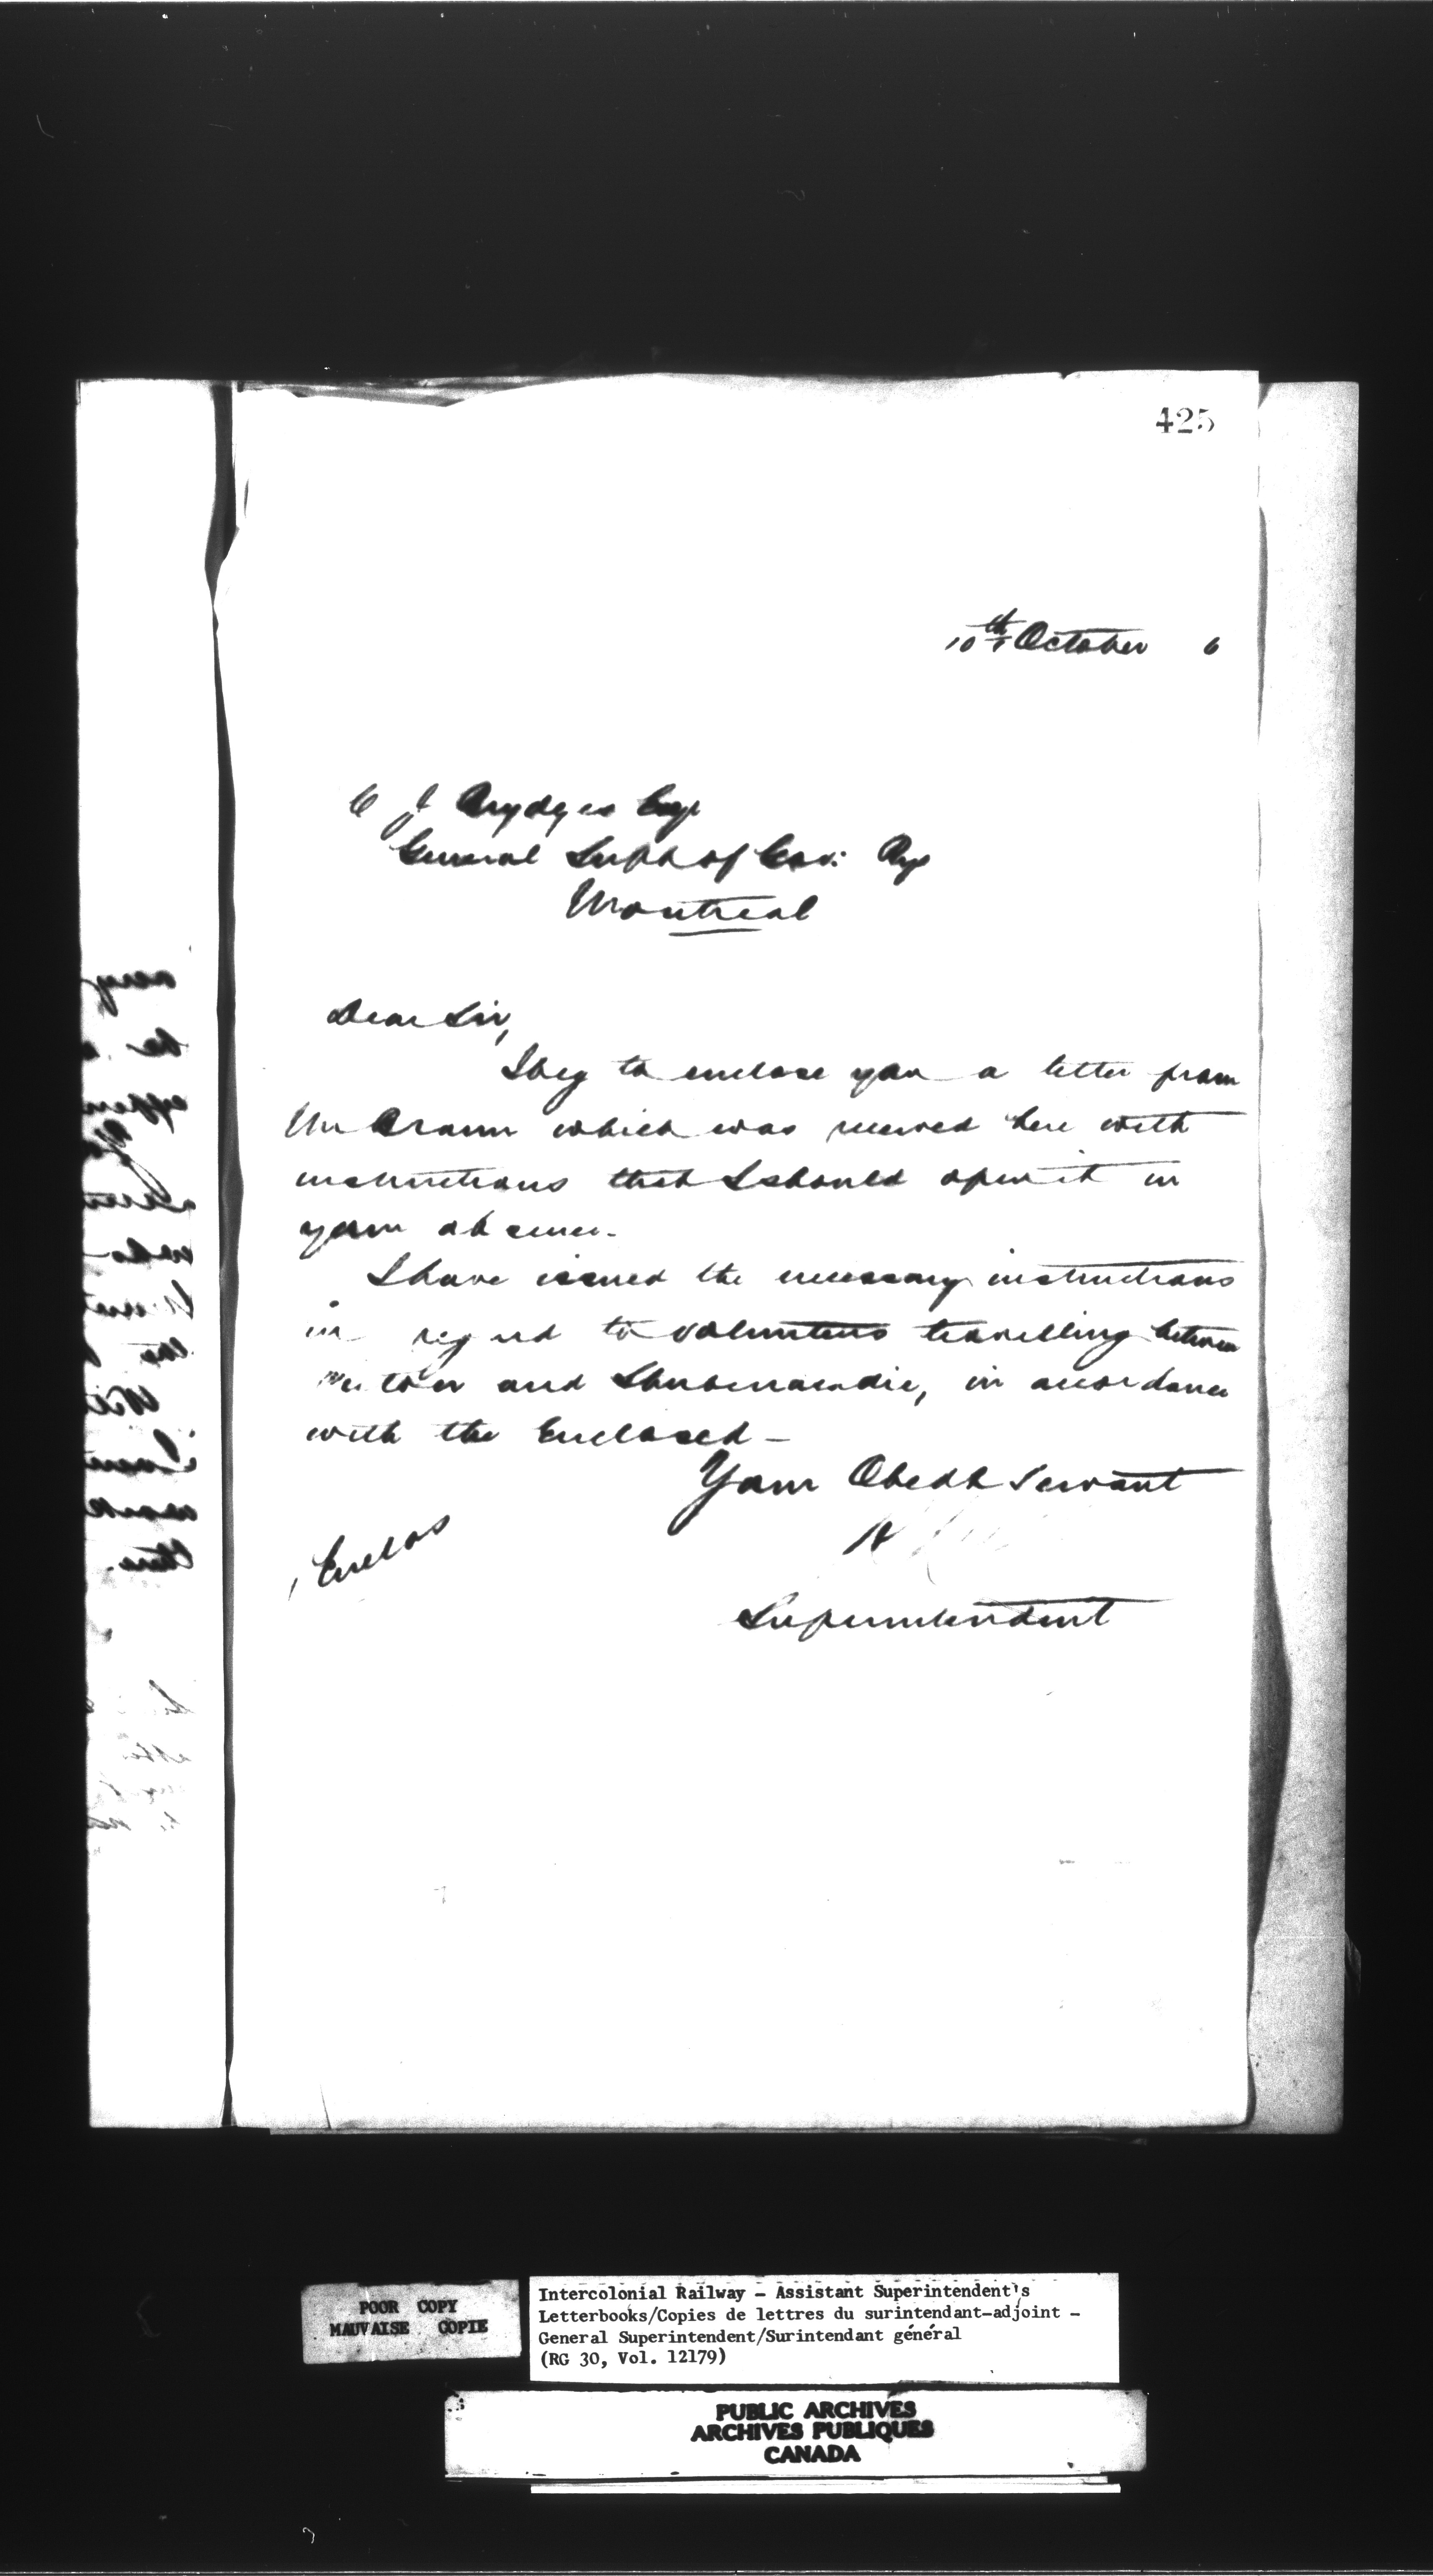 425
10th October 6
C J Brydges Esqr
General Supt of Gov: Rys
Montreal
Dear Sir,
I beg to enclose you a letter from
Mr Braun which was received here with
instructions that I should open it in
your absence.
I have issued the necessary instructions
in regard to volunteers travelling between
Pictou and Shubenacadie, in accordance
with the Enclosed -
Your Obedt Servant
Superintendent
1 Enclos
POOR COPY
MAUVAISE COPIE
Intercolonial Railway - Assistant Superintendent's
Letterbooks/Copies de lettres du surintendant-adjoint -
General Superintendent/Surintendant général
(RG 30, Vol. 12179)
PUBLIC ARCHIVES
ARCHIVES PUBLIQUES
CANADA